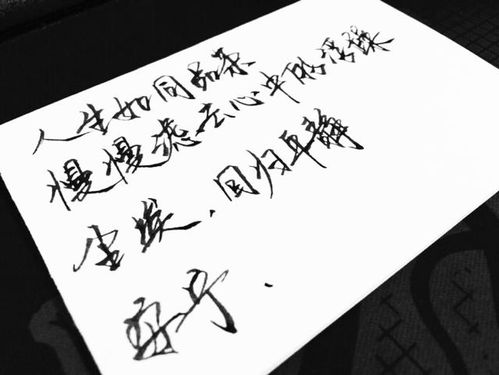 人生如同品茶
慢慢滤去心中的浮躁
尘埃.回归平静
安宁.